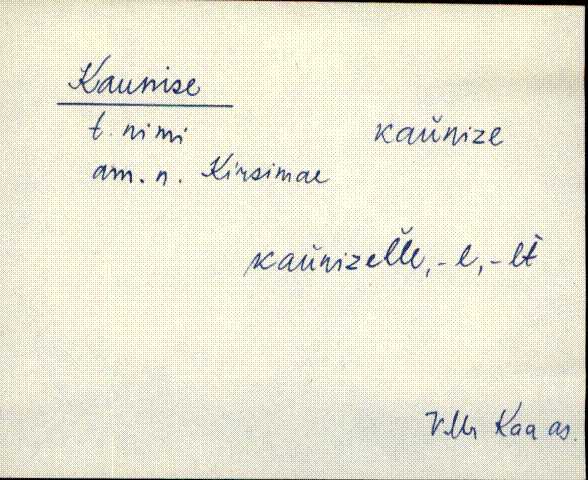 Kaunise
t. nimi kaŭnize
am. n. Kirsimäe
kaŭnizel̆l̆e, -l, -lt
VMr Kaa as.